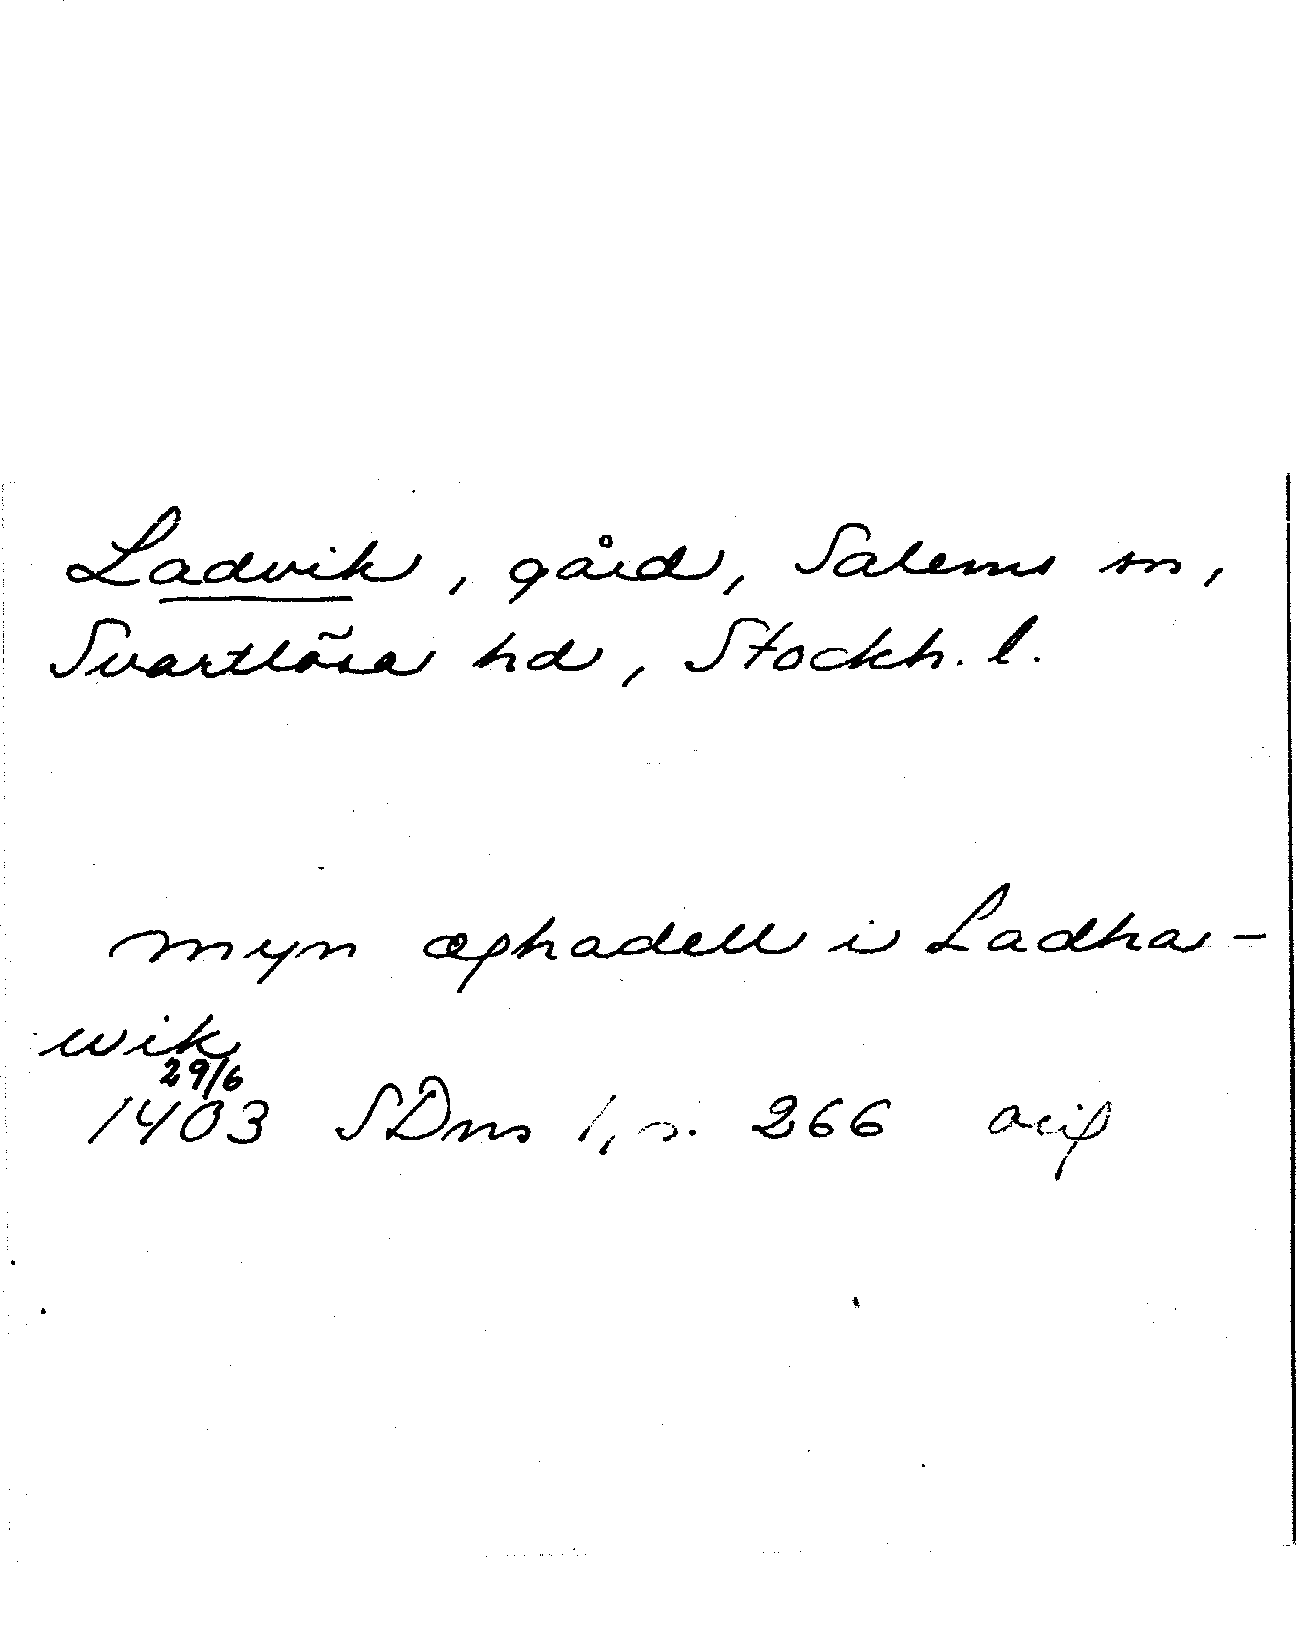 Ladvik, gård, Salems sn,
Svartlösa hd, Stockh. l.
myn æghadell i Ladha-
wik
29/6
1403 SDns 1, s. 266 avip